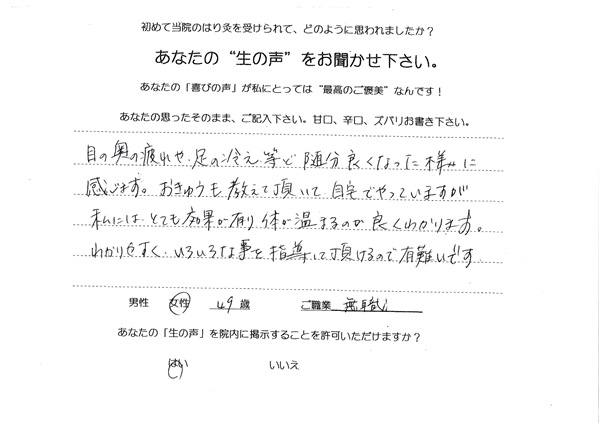 初めて当院のはり灸を受けられて、どのように思われましたか？
あなたの“生の声”をお聞かせ下さい。
あなたの「喜びの声」が私にとっては“最高のご褒美”なんです！
あなたの思ったそのまま、ご記入下さい。甘口、辛口、ズバリお書き下さい。
目の奥の疲れや、足の冷え等ど随分良くなった様に
感じます。おきゅうも教えて頂いて自宅でやっていますが
私にはとても効果が有り体が温まるのが良くわかります。
わかりやすく、いろいろな事を指導して頂けるので有難いです
男性 女性 49歳 ご職業 無職
あなたの「生の声」を院内に掲示することを許可いただけますか？
はい いいえ